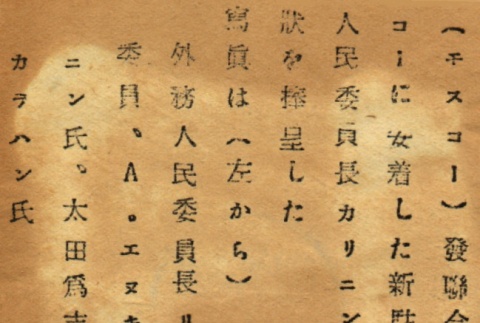 (モスコー)發聯合
コーに安着した新駐
人民委員長カリニン
狀を捧呈した
寫眞は(左から)
外務人民委員長リ
委員、A。エヌキ
ニン氏、太田爲吉
カラハン氏